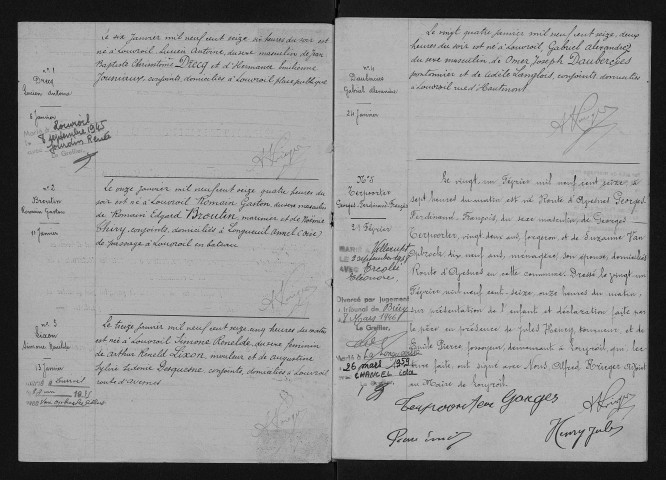 Le six janvier mil neuf cent seize six heures du soir est
né à Louvroil Lucien Antoine, du sexe masculin de Jean
Baptiste Drecq et d'Hermance
conjoints, domiciliés à Louvroil place publique
n° 1
Drecq
Lucien Antoine
6 janvier
Louvroil
8 septembre 1945
Jourdin Renée
Le Greffier,
n° 2
Broulin
Romain Gaston
11 janvier
Le onze janvier mil neuf cent seize quatre heures du
soir est né à Louvroil Romain Gaston, du sexe masculin
de Romain Edgard Broulin, marinier et de
Thiry, conjoints, domiciliés à Longueuil Annel (Oise)
de passage à Louvroil en bateau
n° 3
Lixon
Simone Renelde
13 janvier
Le treize janvier mil neuf cent seize cinq heures du matin
est née à Louvroil Simone Renelde, du sexe féminin
de Arthur Reneld Lixon, mouleur et de Augustine
Sylvie conjoints, domiciliés à Louvroil
route d'Avesnes
Le vingt quatre janvier mil neuf cent seize, deux
heures du soir est né à Louvroil, Gabriel Alexandre
du sexe masculin de Omer Joseph Dauberchies
pontonnier et de Adèle Langlois, conjoints, domiciliés
à Louvroil rue d'Hautmont
n° 4
Dauberchies
Gabriel Alexandre
24 janvier
N° 5
Terpoorter
Georges Ferdinand François
21 Février
Le vingt un Février mil neuf cent seize à
sept heures du matin est né Route d'Avesnes Georges
Ferdinand, François, du sexe masculin de Georges
Terpoorter, vingt deux ans, forgeron et de Suzanne Van
dix neuf ans, ménagère, son épouse, domiciliés
Route d'Avesnes en cette commune. Dressé le vingt un
Février mil neuf cent seize onze heures du matin,
sur présentation de l'enfant et déclaration faite par
le père en présence de Jules Henry, tourneur, et de
Emile Pierre, demeurant à Louvroil, qui, lec-
ture faite ont signé avec Nous, Alfred Adjoint
au Maire de Louvroil
Marié à Villerupt
le 3 septembre
avec Ercole
Eléonore
Divorcé par jugement
tribunal de Briey
7 Mars 1946
Le Greffier,
26 mars 1953
CHANCEL
Terpoorter Georges
Henry Jules
Pierre Emile